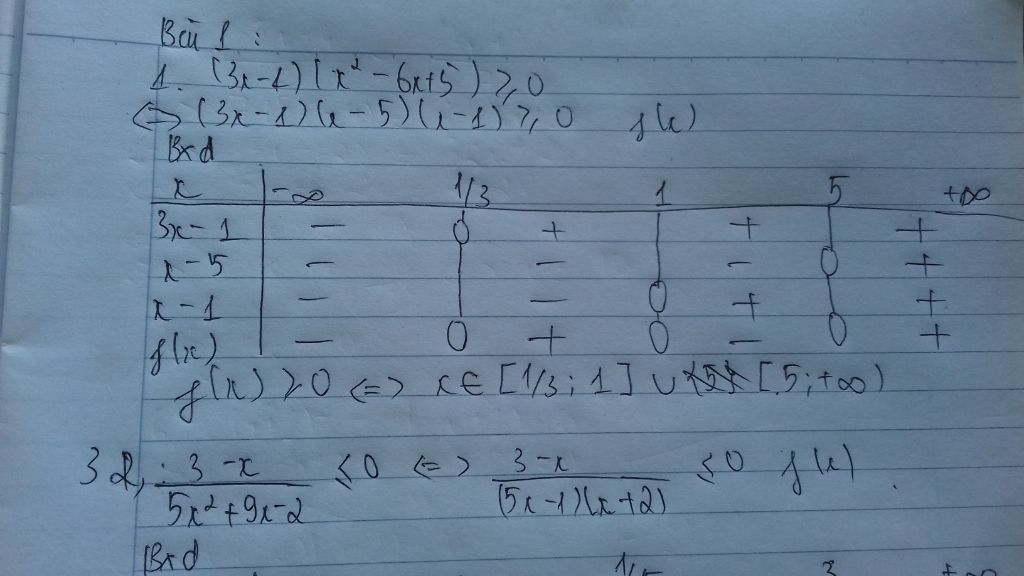 Bài 1 :
1. (3x-1)(x² - 6x+5) ⩾ 0
<=> (3x-1)(x-5)(x-1) ⩾ 0 f(x)
Bxd
x -∞ 1/3 1 5 +∞
3x-1 - 0 + + +
x-5 - - - 0 +
x-1 - - 0 + +
f(x) - 0 + 0 - 0 +
f(x) ⩾ 0 <=> x∈ [1/3 ; 1] ∪ [5;+∞)
3 2, 3-x / 5x²+9x-2 ⩽ 0 <=> 3-x / (5x-1)(x+2) ⩽ 0 f(x) .
Bxd
1/5 3 +∞